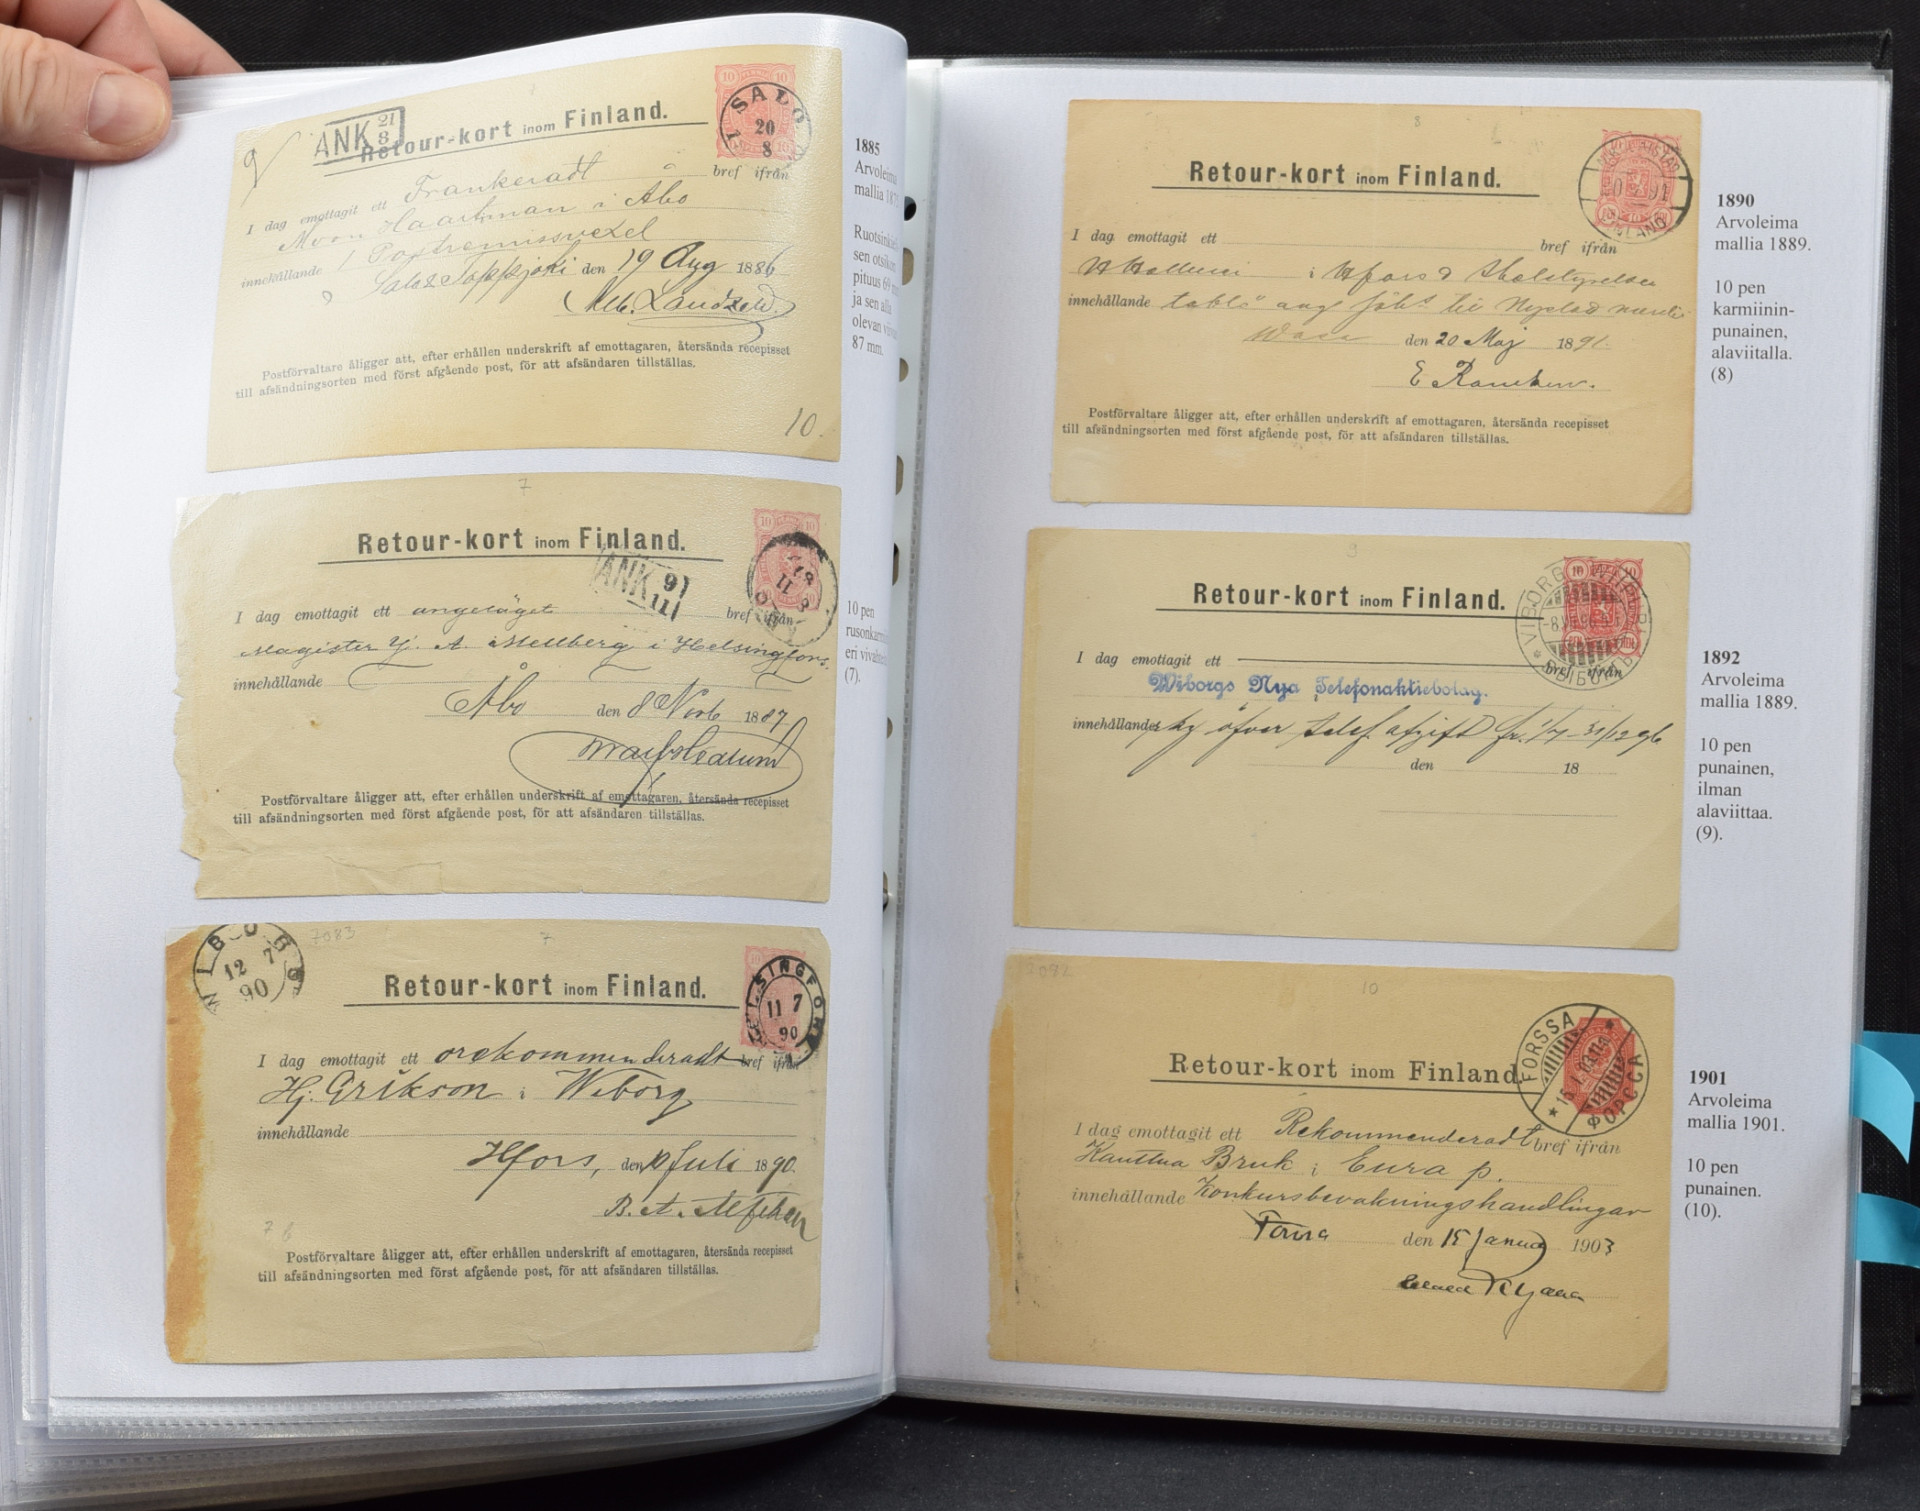 9
ANK 21 8
Retour-kort inom Finland.
SALO
20
8
I dag emottagit ett Frankeradt bref ifrån
Haartman i Åbo
innehållande 1 Postremissvexel
Salo & Toppjoki den 19 Aug 1886
Alb.
Postförvaltare åligger att, efter erhållen underskrift af emottagaren, återsända recepisset
till afsändningsorten med först afgående post, för att afsändaren tillställas.
10.
1885
Arvoleima
mallia 187
Ruotsinkie
sen otsikon
pituus 69
ja sen alla
olevan viivan
87 mm.
7
Retour-kort inom Finland.
ANK 9 11
10 10
8
11
87
I dag emottagit ett angeläget bref ifrån
Magister J. A. Mellberg i Helsingfors.
innehållande
Åbo den 8 Novb 1887
Postförvaltare åligger att, efter erhållen underskrift af emottagaren, återsända recepisset
till afsändningsorten med först afgående post, för att afsändaren tillställas.
10 pen
rusonkarm
eri vivahte
(7).
WIBORG
12 7
90
7083
7
Retour-kort inom Finland.
HELSINGFORS
11 7
90
I dag emottagit ett orekommenderadt bref ifrån
Hj. Erikson i Wiborg
innehållande
Hfors, den 10 Juli 1890.
B. A.
7 b
Postförvaltare åligger att, efter erhållen underskrift af emottagaren, återsända recepisset
till afsändningsorten med först afgående post, för att afsändaren tillställas.
8
Retour-kort inom Finland.
I dag emottagit ett bref ifrån
i Hfors
innehållande
den 20 Maj 1891.
E
Postförvaltare åligger att, efter erhållen underskrift af emottagaren, återsända recepisset
till afsändningsorten med först afgående post, för att afsändaren tillställas.
1890
Arvoleima
mallia 1889.
10 pen
karmiinin-
punainen,
alaviitalla.
(8)
9
Retour-kort inom Finland.
VIBORG
10 10
I dag emottagit ett bref ifrån
Wiborgs Nya Telefonaktiebolag.
innehållande öfver telef. afgift fr. 1/7 - 31/12 96
den 18
1892
Arvoleima
mallia 1889.
10 pen
punainen,
ilman
alaviittaa.
(9).
7092
10
Retour-kort inom Finland
FORSSA
ФОРССА
I dag emottagit ett Rekommenderadt bref ifrån
Kauttua Bruk i Eura p.
innehållande Konkursbevakningshandlingar
Forssa den 15 Januari 1903
1901
Arvoleima
mallia 1901.
10 pen
punainen.
(10).